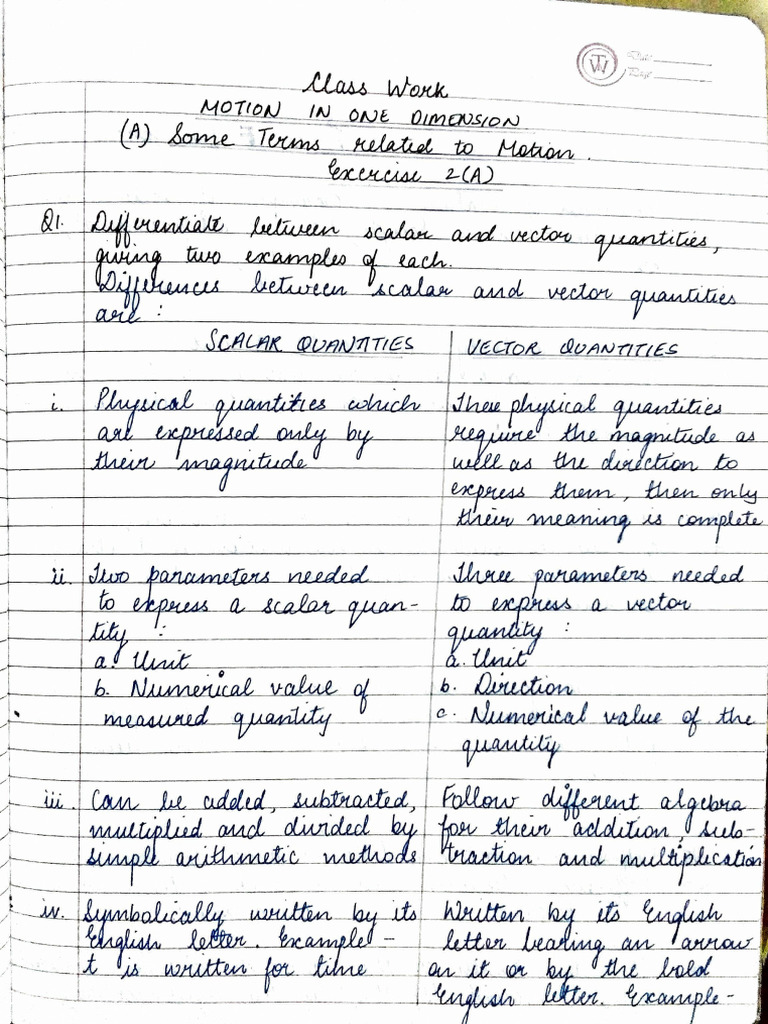 TW
Date
Page
Class Work
MOTION IN ONE DIMENSION
(A) Some Terms related to Motion.
Exercise 2(A)
Q1. Differentiate between scalar and vector quantities,
giving two examples of each.
Differences between scalar and vector quantities
are :
SCALAR QUANTITIES
i. Physical quantities which
are expressed only by
their magnitude
ii. Two parameters needed
to express a scalar quan-
tity :
a. Unit
b. Numerical value of
measured quantity
iii. Can be added, subtracted,
multiplied and divided by
simple arithmetic methods
iv. Symbolically written by its
English letter. Example -
t is written for time
VECTOR QUANTITIES
These physical quantities
require the magnitude as
well as the direction to
express them, then only
their meaning is complete
Three parameters needed
to express a vector
quantity :
a. Unit
b. Direction
c. Numerical value of the
quantity
Follow different algebra
for their addition, sub-
traction and multiplication
Written by its English
letter bearing an arrow
on it or by the bold
English letter. Example-